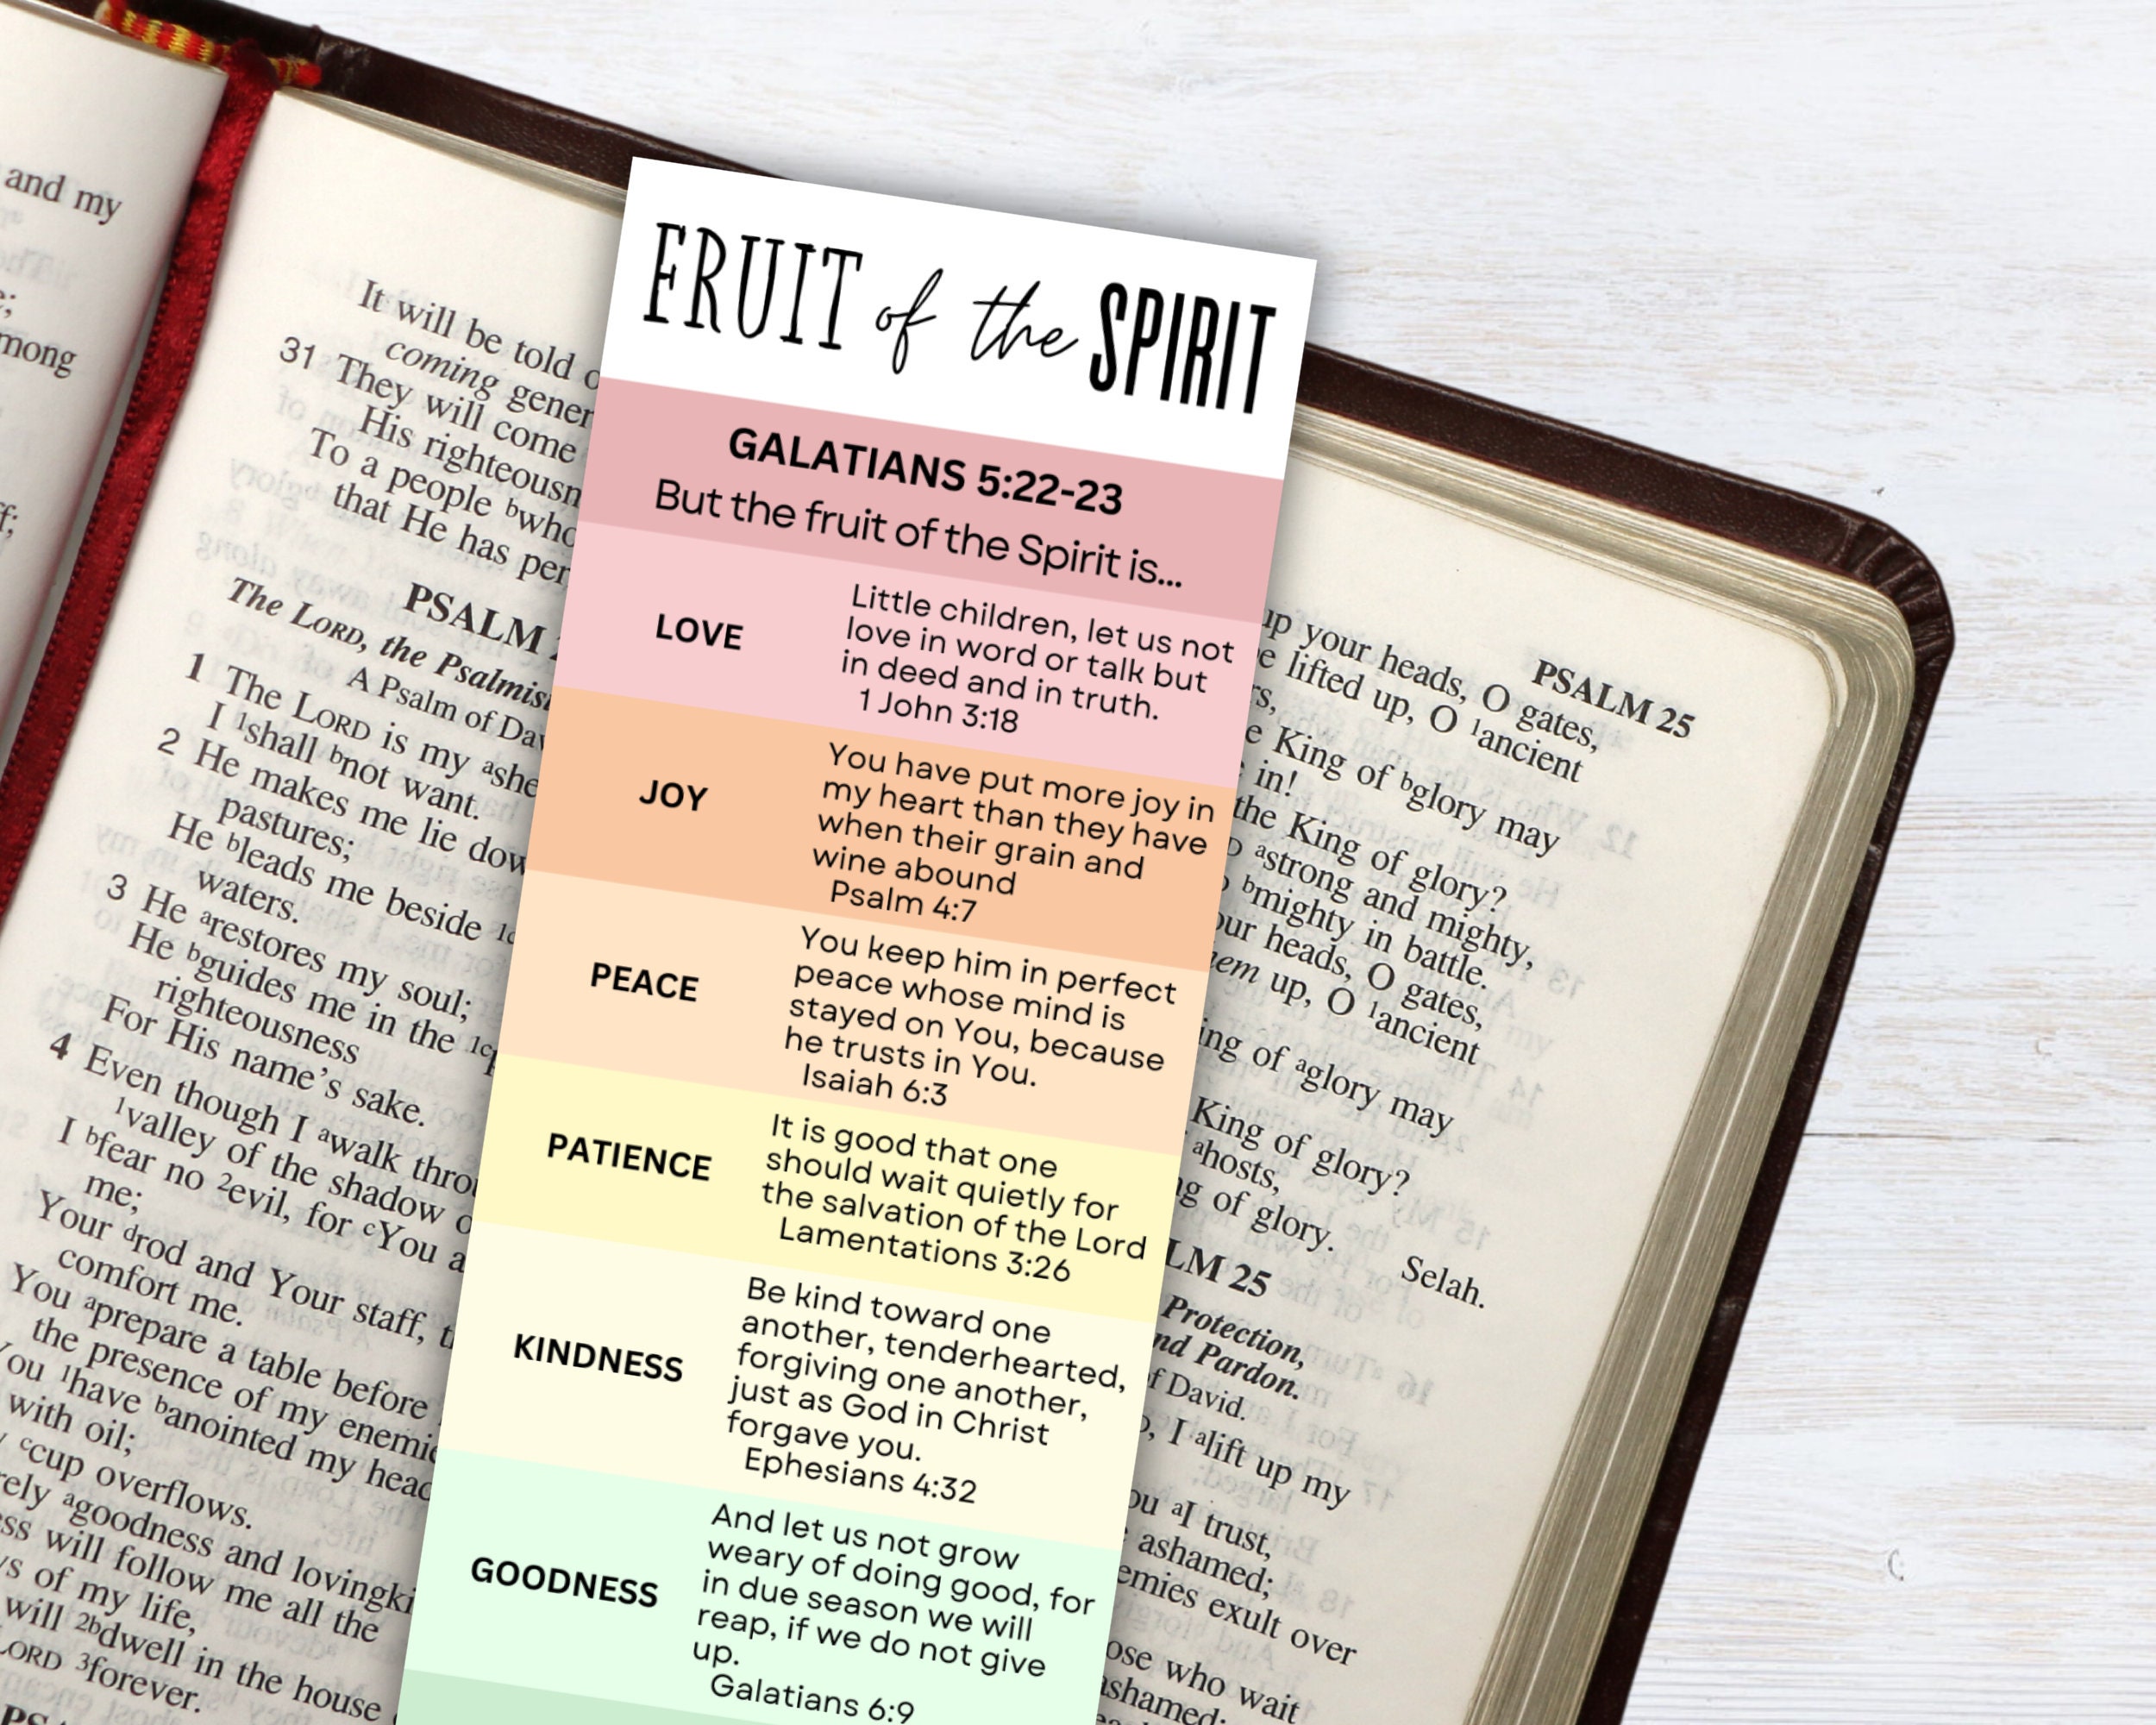 and my
mong
It will be told
coming
31 They will come
His righteousn
To a people ᵇwho
that He has per
PSALM
The LORD, the Psalmis
A Psalm of Dav
1 The LORD is my ᵃshe
I ¹shall ᵇnot want.
2 He makes me lie dow
pastures;
He ᵇleads me beside
waters.
3 He ᵃrestores my soul;
He ᵇguides me in the
righteousness
For His name's sake.
4 Even though I ᵃwalk throu
¹valley of the shadow
I ᵇfear no ²evil, for ᶜYou a
me;
Your ᵈrod and Your staff,
comfort me.
You ᵃprepare a table before
the presence of my enemie
You ¹have ᵇanointed my head
with oil;
ᶜcup overflows.
rely ᵃgoodness and lovingki
ess will follow me all the
ys of my life,
will ²ᵇdwell in the house
LORD ³forever.
FRUIT of the SPIRIT
GALATIANS 5:22-23
But the fruit of the Spirit is...
LOVE
Little children, let us not
love in word or talk but
in deed and in truth.
1 John 3:18
JOY
You have put more joy in
my heart than they have
when their grain and
wine abound
Psalm 4:7
PEACE
You keep him in perfect
peace whose mind is
stayed on You, because
he trusts in You.
Isaiah 6:3
PATIENCE
It is good that one
should wait quietly for
the salvation of the Lord
Lamentations 3:26
KINDNESS
Be kind toward one
another, tenderhearted,
forgiving one another,
just as God in Christ
forgave you.
Ephesians 4:32
GOODNESS
And let us not grow
weary of doing good, for
in due season we will
reap, if we do not give
up.
Galatians 6:9
PSALM 25
up your heads, O gates,
e lifted up, O ¹ancient
rs,
e King of ᵇglory may
in!
the King of glory?
ᵃstrong and mighty,
ᵇmighty in battle.
our heads, O gates,
hem up, O ¹ancient
ing of ᵃglory may
King of glory?
ᵃhosts,
ng of glory. Selah.
LM 25
Protection,
nd Pardon.
f David.
I ᵃlift up my
ou ᵃI trust,
ashamed;
emies exult over
ose who wait
ashamed;